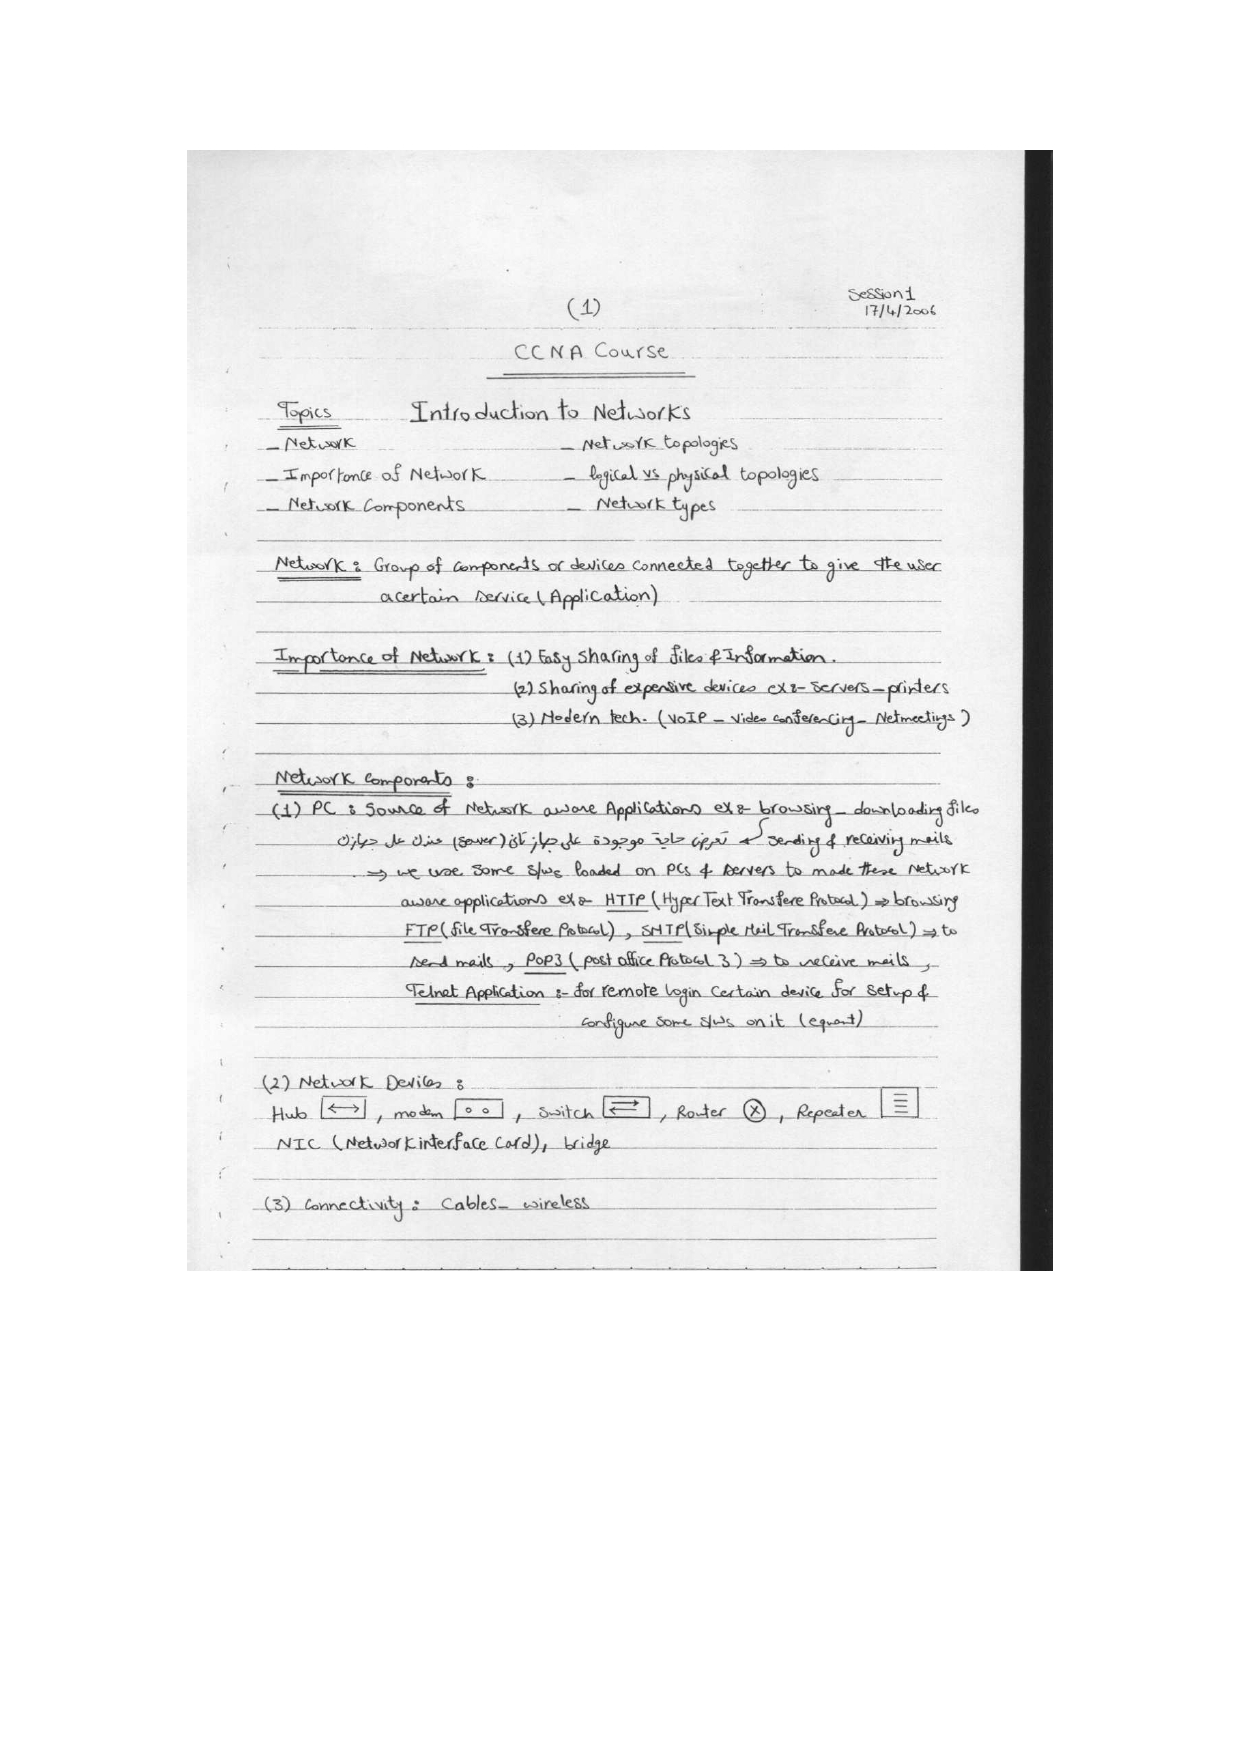 (1)
Session 1
17/4/2006
CCNA Course
Topics Introduction to Networks
- Network - Network topologies
- Importance of Network - logical vs physical topologies
- Network Components - Network types
Network : Group of components or devices connected together to give the user
a certain service (Application)
Importance of Network : (1) Easy sharing of files & Information.
(2) Sharing of expensive devices ex:- servers - printers
(3) Modern tech. (VoIP - Video conferencing - Netmeetings)
Network Components :
(1) PC : Source of Network aware Applications ex:- browsing - downloading files
sending & receiving mails ⇐ تعرض حاجة موجودة على جهاز تانى (server) عندك على جهازك
⇒ we use some s/ws loaded on PCs & servers to made these Network
aware applications ex:- HTTP (Hyper Text Transfere Protocol) ⇒ browsing
FTP (file Transfere Potocol) , SMTP (Simple Mail Transfere Protocol) ⇒ to
send mails , POP3 ( post office Protocol 3 ) ⇒ to receive mails ,
Telnet Application :- for remote login certain device for setup &
configure some s/ws on it
(2) Network Devices :
Hub , modem , Switch , Router , Repeater
NIC (Network interface Card), bridge
(3) Connectivity : Cables - wireless